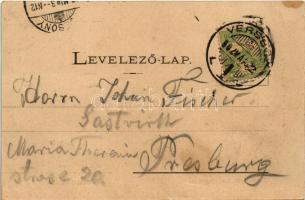 LEVELEZŐ-LAP.
Herrn Johann Fischer
Gastwirth
Maria Theresien
strasse 2a
Presburg